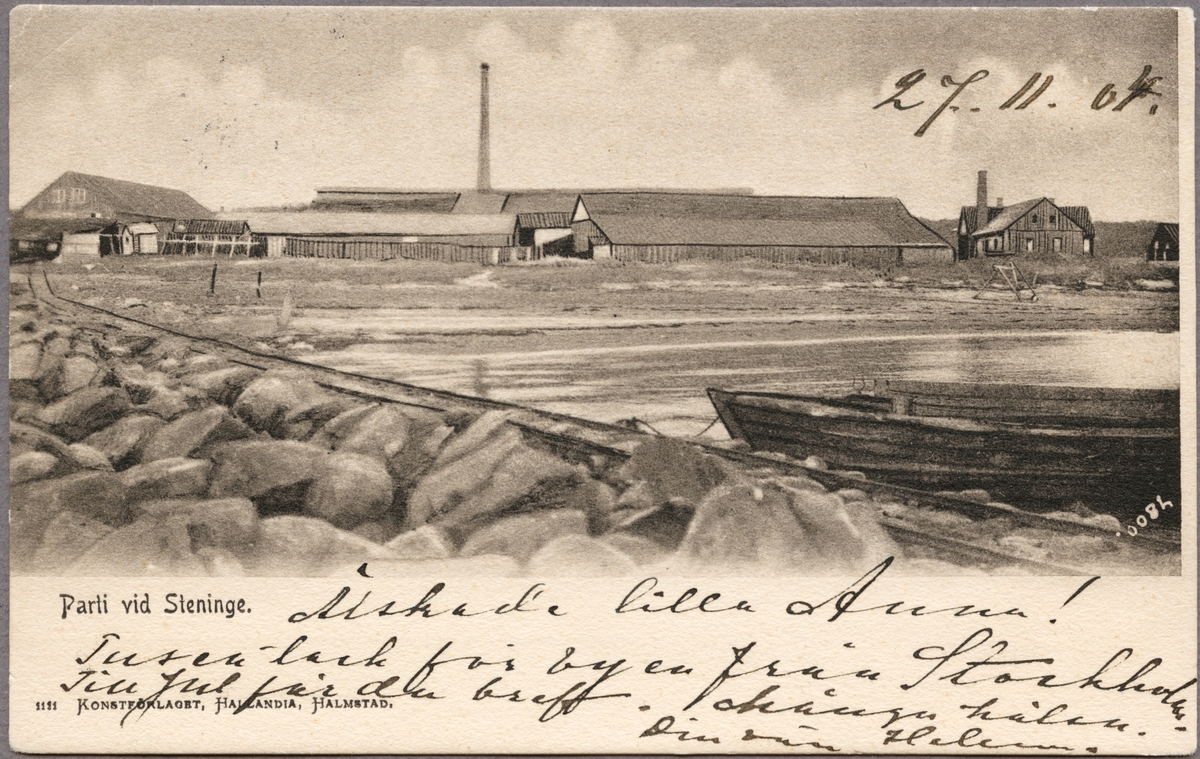 27. 11. 04.
4800.
Parti vid Steninge.
Älskade lilla Anna!
Tusen tack för vyen från Stockholm.
Till Jul får du breff. Många hälsn.
1111 Konstförlaget, Hallandia, Halmstad.
Din vän